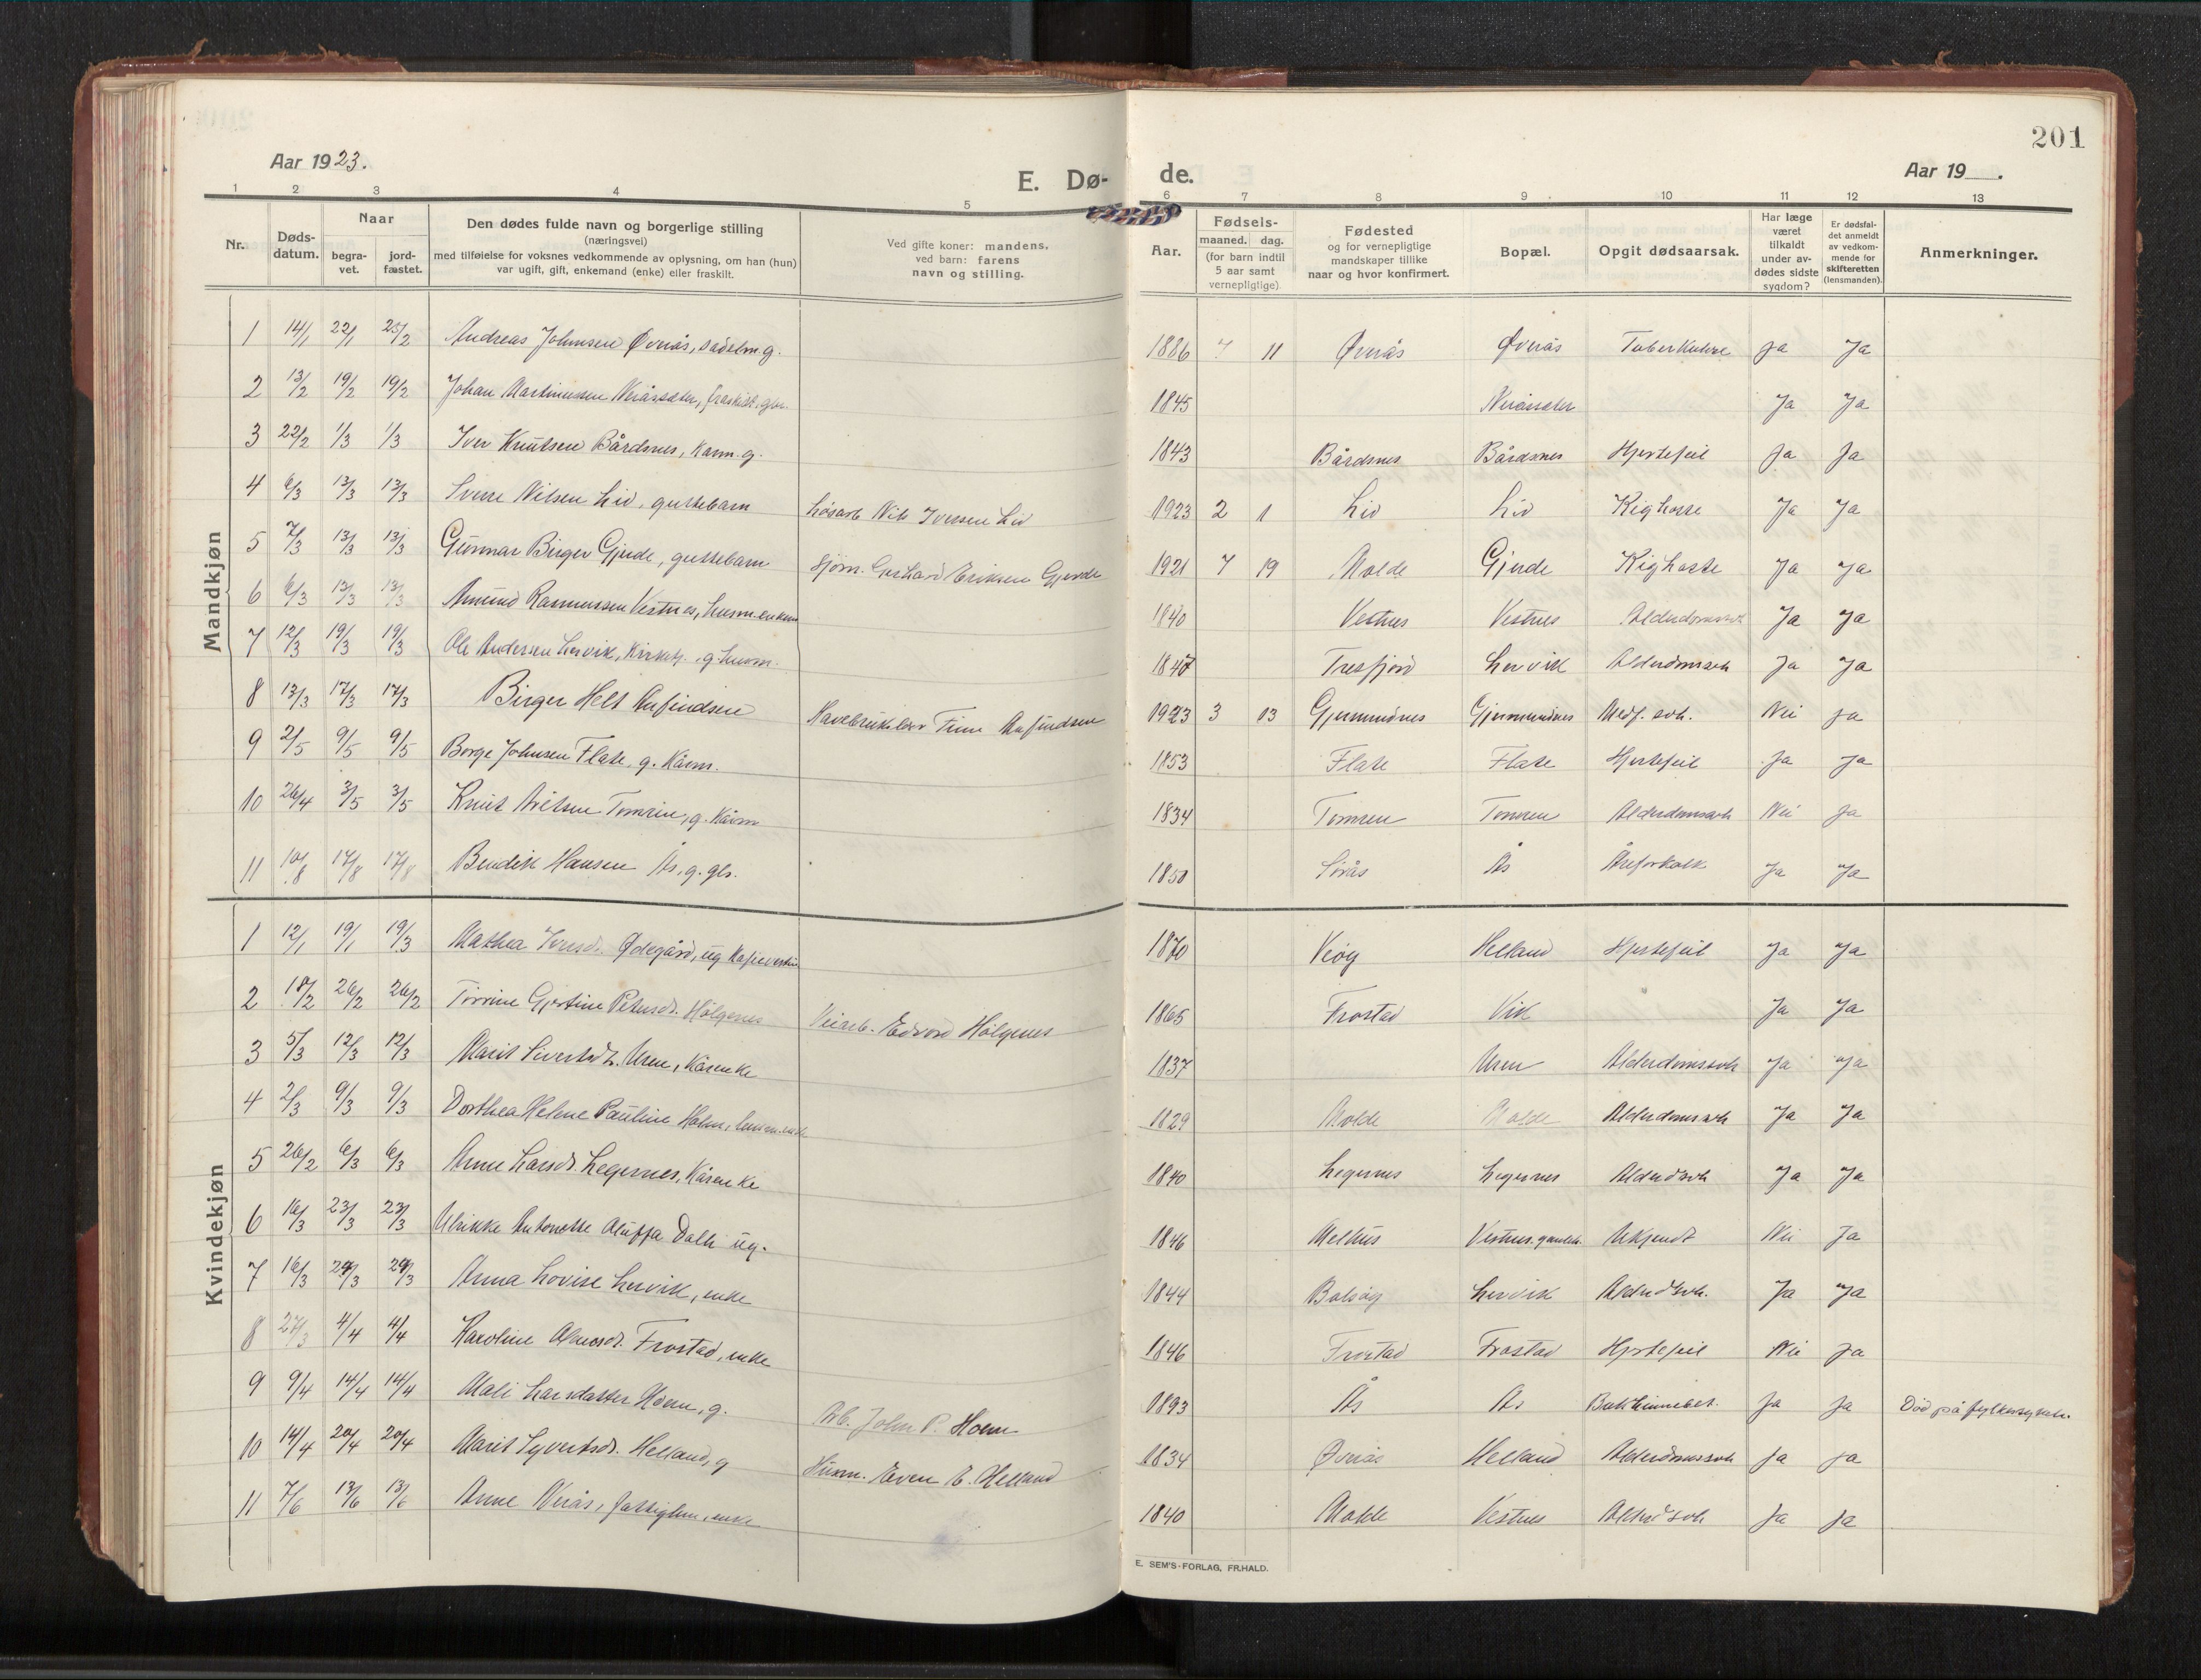 201
Aar 1923.
E. Dø-
de.
Aar 19 .
1 2 3 4 5 6 7 8 9 10 11 12 13
Nr.
Døds-
datum.
Naar
begra-
vet.
jord-
fæstet.
Den dødes fulde navn og borgerlige stilling
(næringsvei)
med tilføielse for voksnes vedkommende av oplysning, om han (hun)
var ugift, gift, enkemand (enke) eller fraskilt.
Ved gifte koner: mandens,
ved barn: farens
navn og stilling.
Aar.
Fødsels-
maaned. dag.
(for barn indtil
5 aar samt
vernepligtige)
Fødested
og for vernepligtige
mandskaper tillike
naar og hvor konfirmert.
Bopæl.
Opgit dødsaarsak.
Har læge
været
tilkaldt
under av-
dødes sidste
sygdom?
Er dødsfal-
det anmeldt
av vedkom-
mende for
skifteretten
(lensmanden).
Anmerkninger.
Mandkjøn
1 14/1 22/1 25/2 Andreas Johnsen Øverås, sadelm. g. 1886 7 11 Øverås Øverås Tuberkulose Ja Ja
2 13/2 19/2 19/2 Johan Martinussen Neråssæter, fraskilt, gbr. 1845 Neråssæter Ja Ja
3 22/2 1/3 1/3 Iver Knutsen Bårdsnes, kårm. g. 1843 Bårdsnes Bårdsnes Hjertefeil Ja Ja
4 6/3 13/3 13/3 Sverre Nilsen Lid, guttebarn Løsarb. Nils Iversen Lid 1923 2 1 Lid Lid Kighoste Ja Ja
5 7/3 13/3 13/3 Gunnar Birger Gjerde, guttebarn Sjøm. Gerhard Eriksen Gjerde 1921 7 19 Molde Gjerde Kighoste Ja Ja
6 6/3 13/3 13/3 Amund Rasmussen Vestnes, husm. enkem 1840 Vestnes Vestnes Alderdomssvk Ja Ja
7 12/3 19/3 19/3 Ole Andersen Lervik, Kirketj., g. husm. 1847 Tresfjord Lervik Alderdomsvh Ja Ja
8 13/3 17/3 17/3 Birger Helt Anfindsen Havebrukslær Finn Anfindsen 1923 3 13 Gjermundnes Gjermundnes Medf. svh. Nei Ja
9 2/5 9/5 9/5 Borge Johnsen Flate, g. Kårm. 1853 Flate Flate Hjertefeil Ja Ja
10 26/4 3/5 3/5 Knut Nilsen Tomren, g. Kårm 1834 Tomren Tomren Alderdomssvh Nei Ja
11 10/8 17/8 17/8 Bendik Hansen Ås, g. gbr. 1850 Sørås Ås Åreforkalk Ja Ja
Kvindekjøn
1 12/1 19/1 19/3 Mathea Iversd. Ødegård, ug. Kafevertin 1870 Veøy Helland Hjertefeil Ja Ja
2 18/2 26/2 26/2 Torrine Gjertine Petersd. Hølgenes Veiarb. Edvard Hølgenes 1865 Frostad Vik Ja Ja
3 5/3 12/3 12/3 Marit Sivertsdt. Uren, Kårenke 1837 Uren Alderdomssvh Ja Ja
4 2/3 9/3 9/3 Dorthea Helene Pauline Holm, lensm.enke 1829 Molde Molde Alderdomssvh Ja Ja
5 26/2 6/3 6/3 Anne Larsdt. Legernes, Kårenke 1840 Legernes Legernes Alderdsvh Ja Ja
6 16/3 23/3 23/3 Ulrikke Antonette Aluffa Dall ug. 1846 Melhus Vestnes gamleh. Ukjendt Nei Ja
7 16/3 24/3 24/3 Anna Lovise Lervik, enke 1844 Bolsøy Lervik Alderdsvh. Ja Ja
8 27/3 4/4 4/4 Karoline Asmosd. Frostad, enke 1846 Frostad Frostad Hjertefeil Nei Ja
9 9/4 14/4 14/4 Mali Larsdatter Hoem, g. Arb. John P. Hoem 1893 Ås Ås Bukhinnebet. Ja Ja Død på fylkessykeh.
10 14/4 20/4 20/4 Marit Syvertsdt. Helland, g Husm. Even E. Helland 1834 Øverås Helland Alderdomssvh Ja Ja
11 7/6 13/6 13/6 Anne Nerås, fattiglem, enke 1840 Molde Vestnes Alderdsvh Ja Ja
E. SEM'S-FORLAG, FR.HALD.